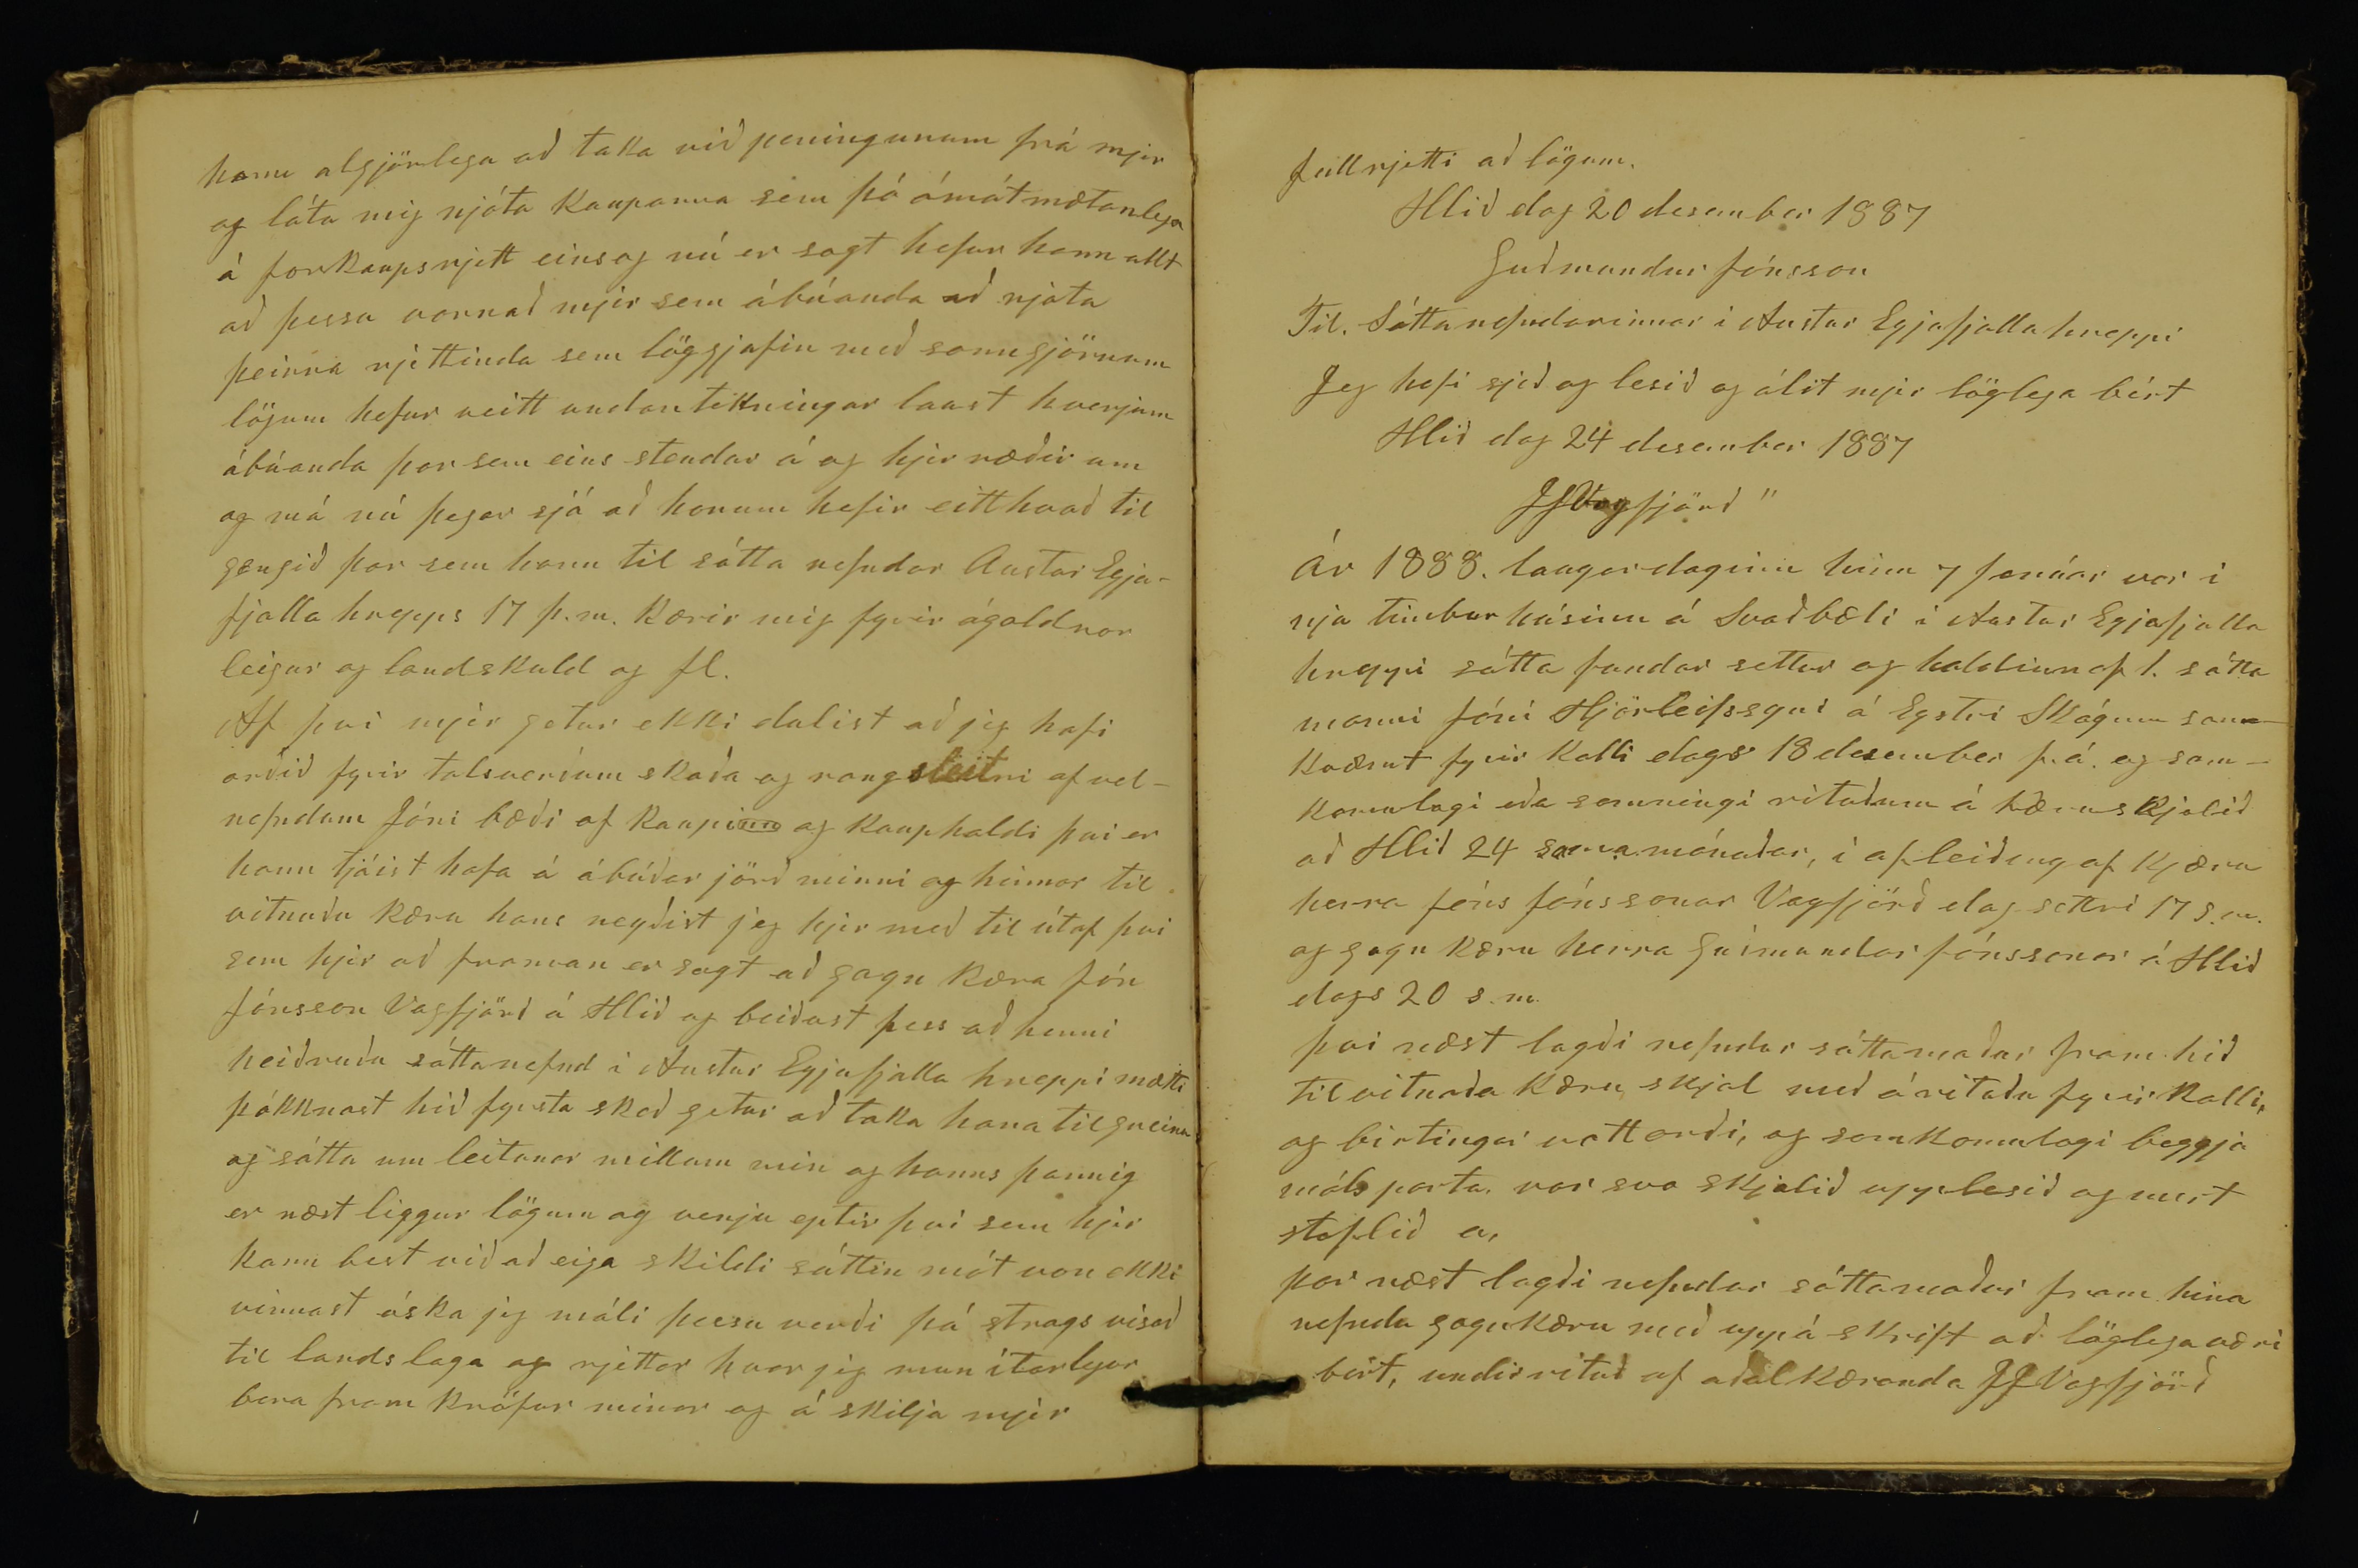 hann algjörlega að taka við peningunum frá mjer
og láta mig njóta Kaupanna sem þó ómótmætanlega
á forkaupsrjett eins og nú er sagt hefur hann allt
að þessu varnað mjer sem ábúanda að njóta
þeirra rjettinda sem löggjafin með sanngjörnum
lögum hefur veitt undantekningar laust hverjum
ábúanda þar sem eins stendur á og hjer ræðir um
og má nú þegar sjá að honum hefir eitthvað til
gengið þar sem hann til sátta nefndar Austur Eyja-
fjalla hrepps 17 þ.m. Kærir mig fyrir ógoldnar
leigur og landskuld og fl.
Af því mjer getur ekki dulist að jeg hafi
orðið fyrir talsverðum skaða og rangsleitni af vel-
nefndum Jóni bæði af Kaupi og Kauphaldi því er
hann tjáist hafa á ábúðar jörð minni og hinnar til
vitnuðu Kæru hans neyðist jeg hjer með til útaf því
sem hjer að framan er sagt að gagn Kæra Jón
Jónsson Vagfjörð á Hlið og beiðast þess að henni
heiðruðu sáttanefnd i Austur Eyjafjalla hreppi mætti
þókknast hið fyrsta skeð getur að taka hana til greina
og sátta um leitanar millum min og hanns þannig
er næst liggur lögum og venju eptir því sem hjer
kann best við að eiga skildi sáttin mót von ekki
vinnast óska jeg máli þessu verði þá strags visað
til landslaga og rjettar hvar jeg mun ítarlegar
bera fram Kröfur minar og á skilja mjer
fullrjetti að lögum.
Hlið dag 20 desember 1887
Guðmundur Jónsson
Til. Sáttanefndarinnar i Austur Eyjafjallahreppi
Jeg hefi sjeð og lesið og álit mjer löglega birt
Hlið dag 24 desember 1887
JJVagfjörð"
Ár 1888. laugardaginn hinn 7 janúar var i
nýa timburhúsinu á Svaðbæli i Austur Eyjafjalla
hreppi sátta fundar settur og haldinn af 1. sátta
manni Jóni Hjörleifssyni á Eystri Skógum sam-
kvæmt fyrir Kalli dags 18 desember f.á. og sam-
komulagi eða samningi rituðum á kæruskjalið
að Hlið 24 sama mánaðar, i afleiðing af Kjæru
herra Jóns Jónssonar Vagfjörð dagsettri 17 s.m.
og gagn Kæru herra Guðmundar Jónssonar á Hlið
dags 20 s.m.
því næst lagði nefndur sáttamaður fram hið
tilvitnaða Kæru skjal með árituðu fyrir Kalli,
og birtingar vottorði, og samkomulagi beggja
máls parta. var svo skjalið upplesið og merkt
staflið a,
þar næst lagði nefndur sáttamaður fram hina
nefndu gagnKæru með uppáskrift að löglega væri
birt, undirrituð af aðalKæranda JJVagfjörð